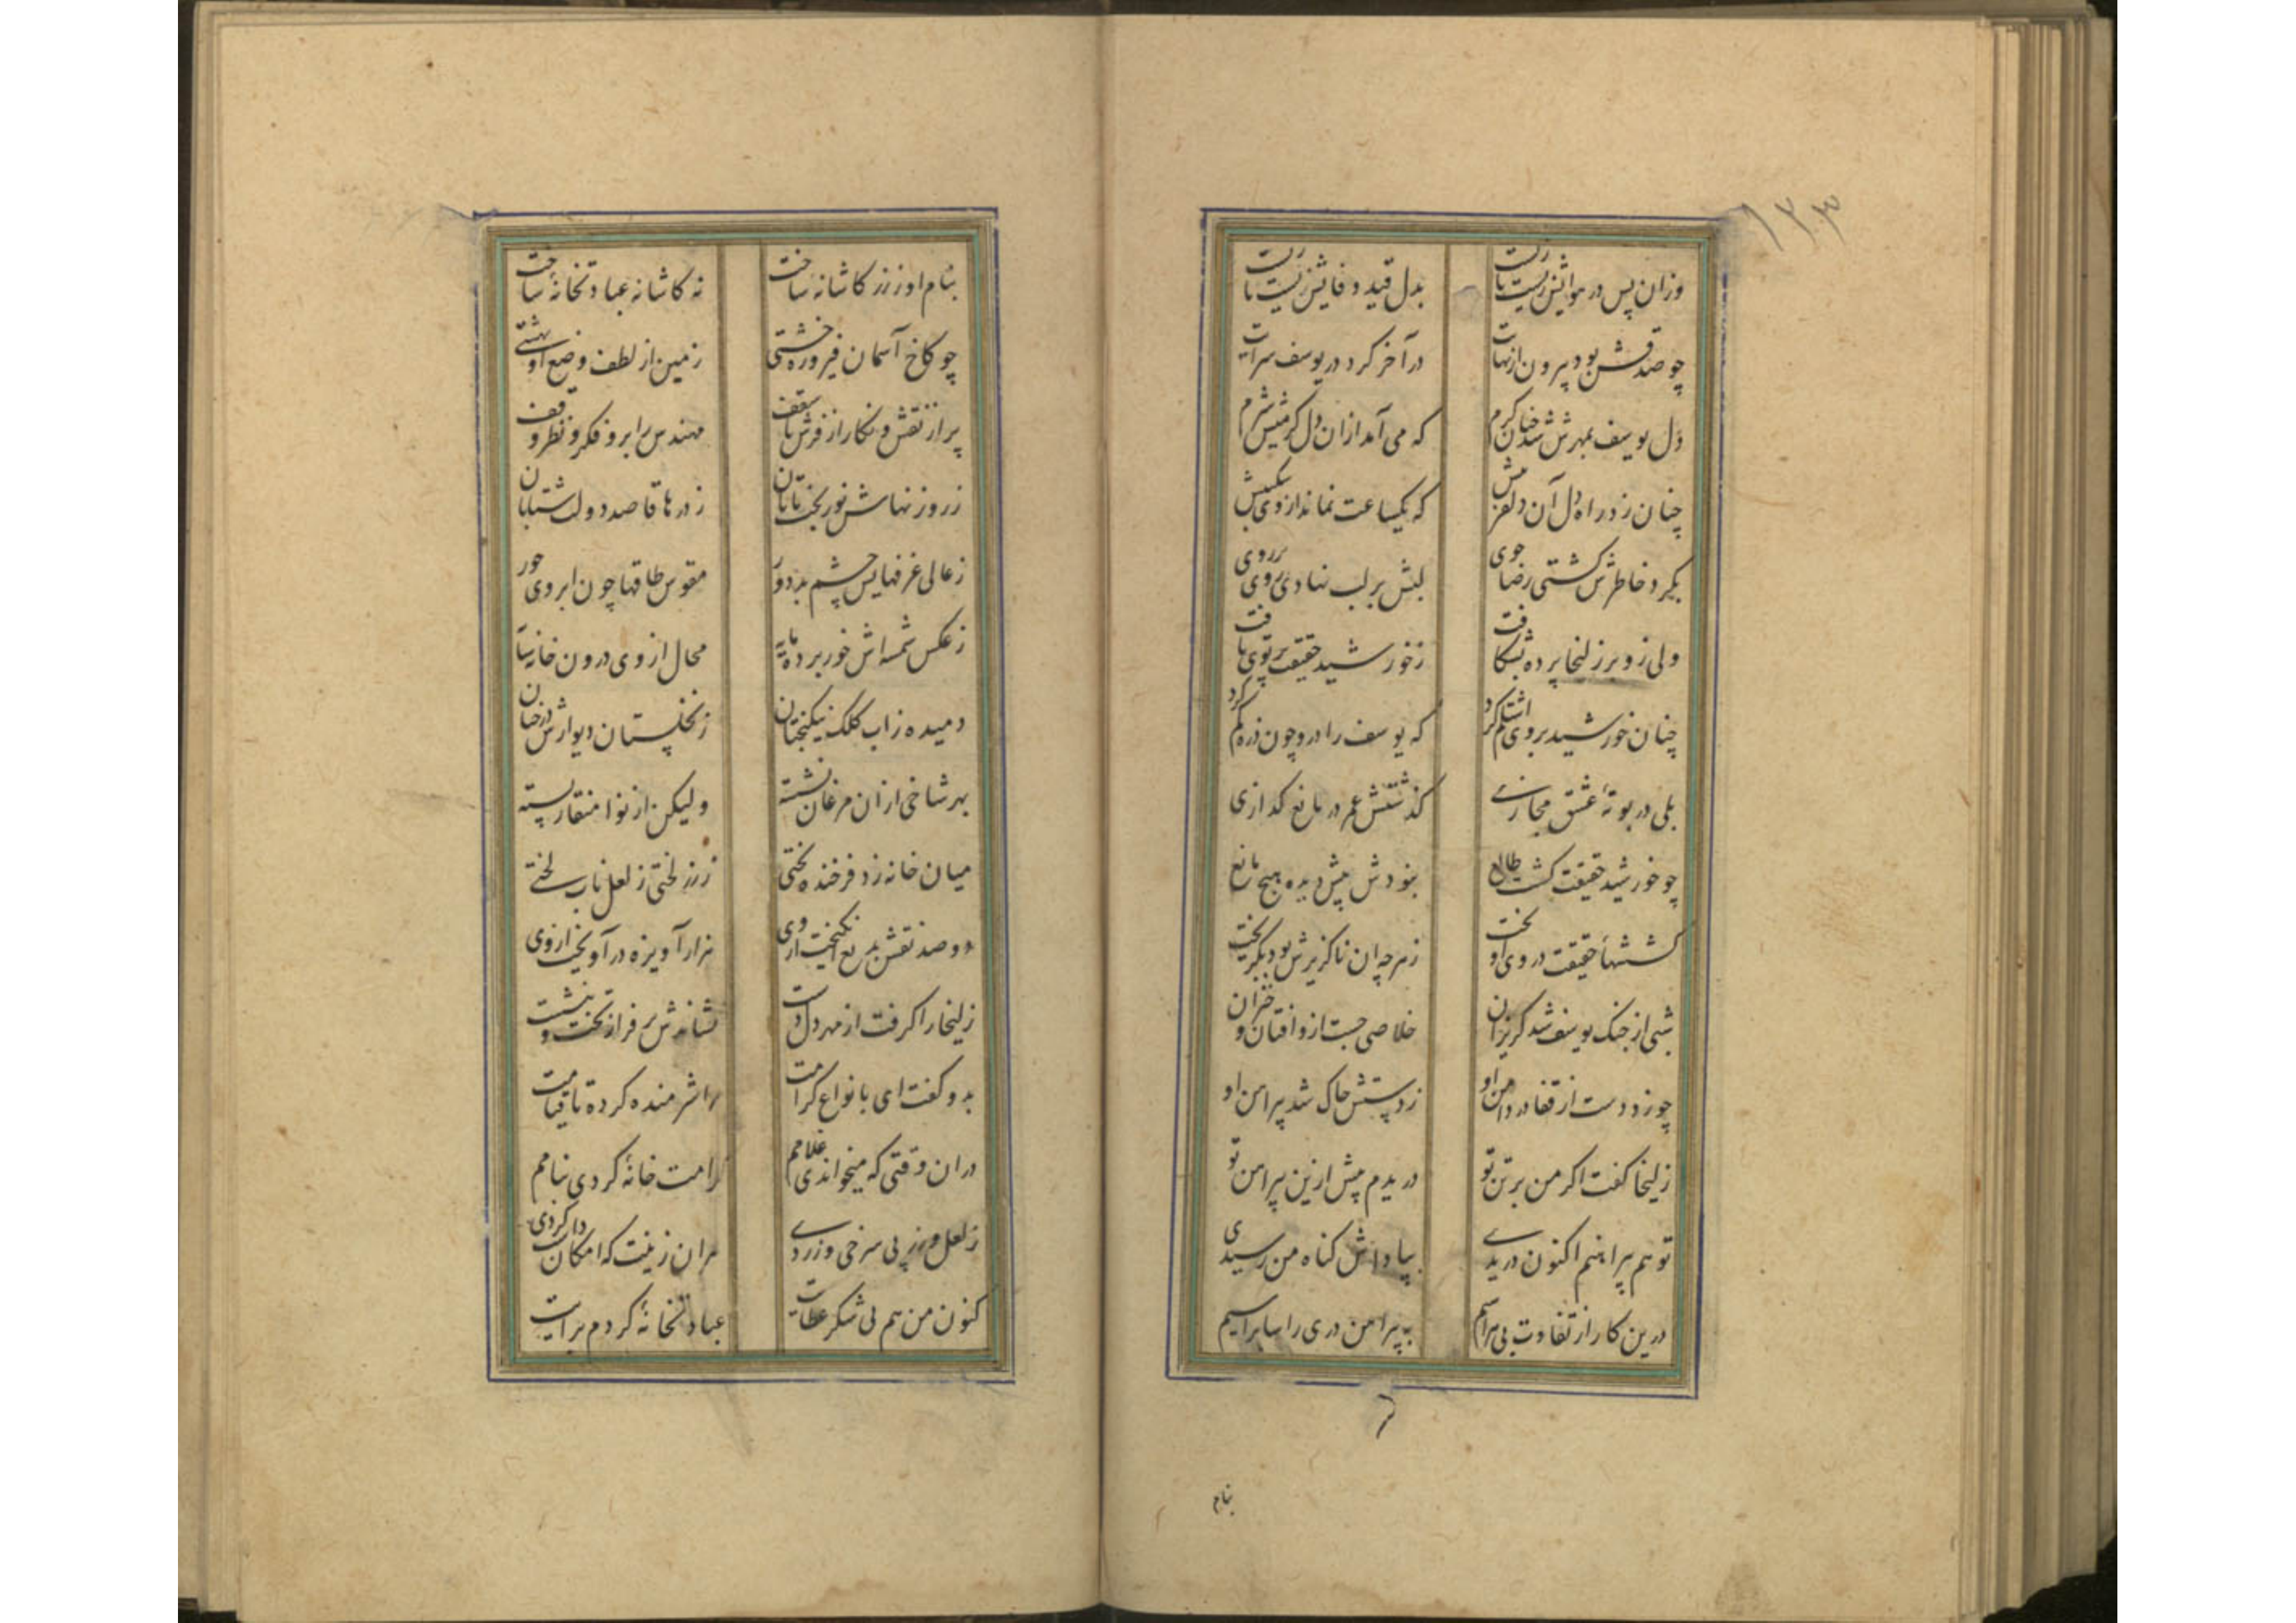 ۱۲۳
وزان پس در هوایش زیست بایست بدل قید وفایش زیست بایست
چو صدقش بود بیرون از نهایت در آخر کرد در یوسف سرایت
دل یوسف بمهرش شد چنان گرم که می آمد ازان دل گرمیش شرم
چنان زد راه دل آن دلفزیش که یکساعت نماند از وی شکیبش
بکرد خاطرش گشتی رضا جوی لبش بر لب نهادی روی بر روی
ولی زو بر زلیخا پرده بشکافت ز خورشید حقیقت پرتوی یافت
چنان خورشید بر وی اشتلم کرد که یوسف را در و چون ذره گم کرد
بلی در بوتهٔ عشق مجازی گذشتش عمر در مانع گدازی
چو خورشید حقیقت گشت طالع نبودش پیش دیده هیچ مانع
کششهای حقیقت در وی آویخت ز هرچه آن ناگزیرش بود بگریخت
شبی از چنگ یوسف شد گریزان خلاصی جست ازو افتان و خیزان
چو زد دست از قفا در دامن او ز دستش چاک شد پیراهن او
زلیخا گفت اگر من بر تن تو دریدم پیش ازین پیراهن تو
تو هم پیراهنم اکنون دریدی بپاداش گناه من رسیدی
درین کار از تفاوت بی هراسیم به پیراهن دری راسا براسیم
بنام
بنام او ز زر کاشانه ساخت نه کاشانه عبادتخانهٔ ساخت
چو کاخ آسمان فیروزه خشتی زمین از لطف وضع او بهشتی
پر از نقش و نگار از فرش تا سقف مهندس را برو فکر و نظر وقف
ز روزنهاش نور بخت تابان ز درها قاصد دولت شتابان
ز عالی غرفهایش چشم بد دور مقوس طاقها چون ابروی حور
ز عکس شمسه اش خور برده مایه محال از وی درون خانه سایه
دمیده ز آب کلک نیکبختان ز نخلستان دیوارش درختان
بهر شاخی ازان مرغان نشسته ولیکن از نوا منقار بسته
میان خانه زد فرخنده تختی ز زر لختی ز لعل ناب لختی
دو صد نقش بدیع انگیخت از وی هزار آویزه در آویخت از وی
زلیخا را گرفت از مهر دل دست نشاندش بر فراز تخت و بنشست
بدو گفت ای بانواع کرامت مرا شرمنده کرده تا قیامت
دران وقتی که میخواندی غلامم کرامت خانهٔ کردی بنامم
ز لعل و زر پی سرخی و زردی دران زینت که امکان داشت کردی
کنون من هم پی شکر عطایت عبادتخانهٔ کردم برایت